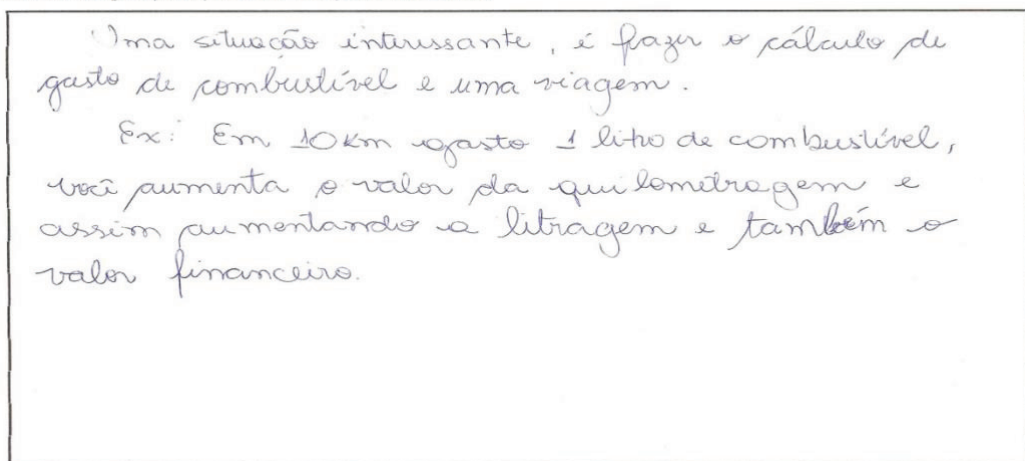 Uma situação interessante, é fazer o cálculo de
gasto de combustível e uma viagem.
Ex: Em 10 km gasto 1 litro de combustível,
você aumenta o valor da quilometragem e
assim aumentando a litragem e também o
valor financeiro.